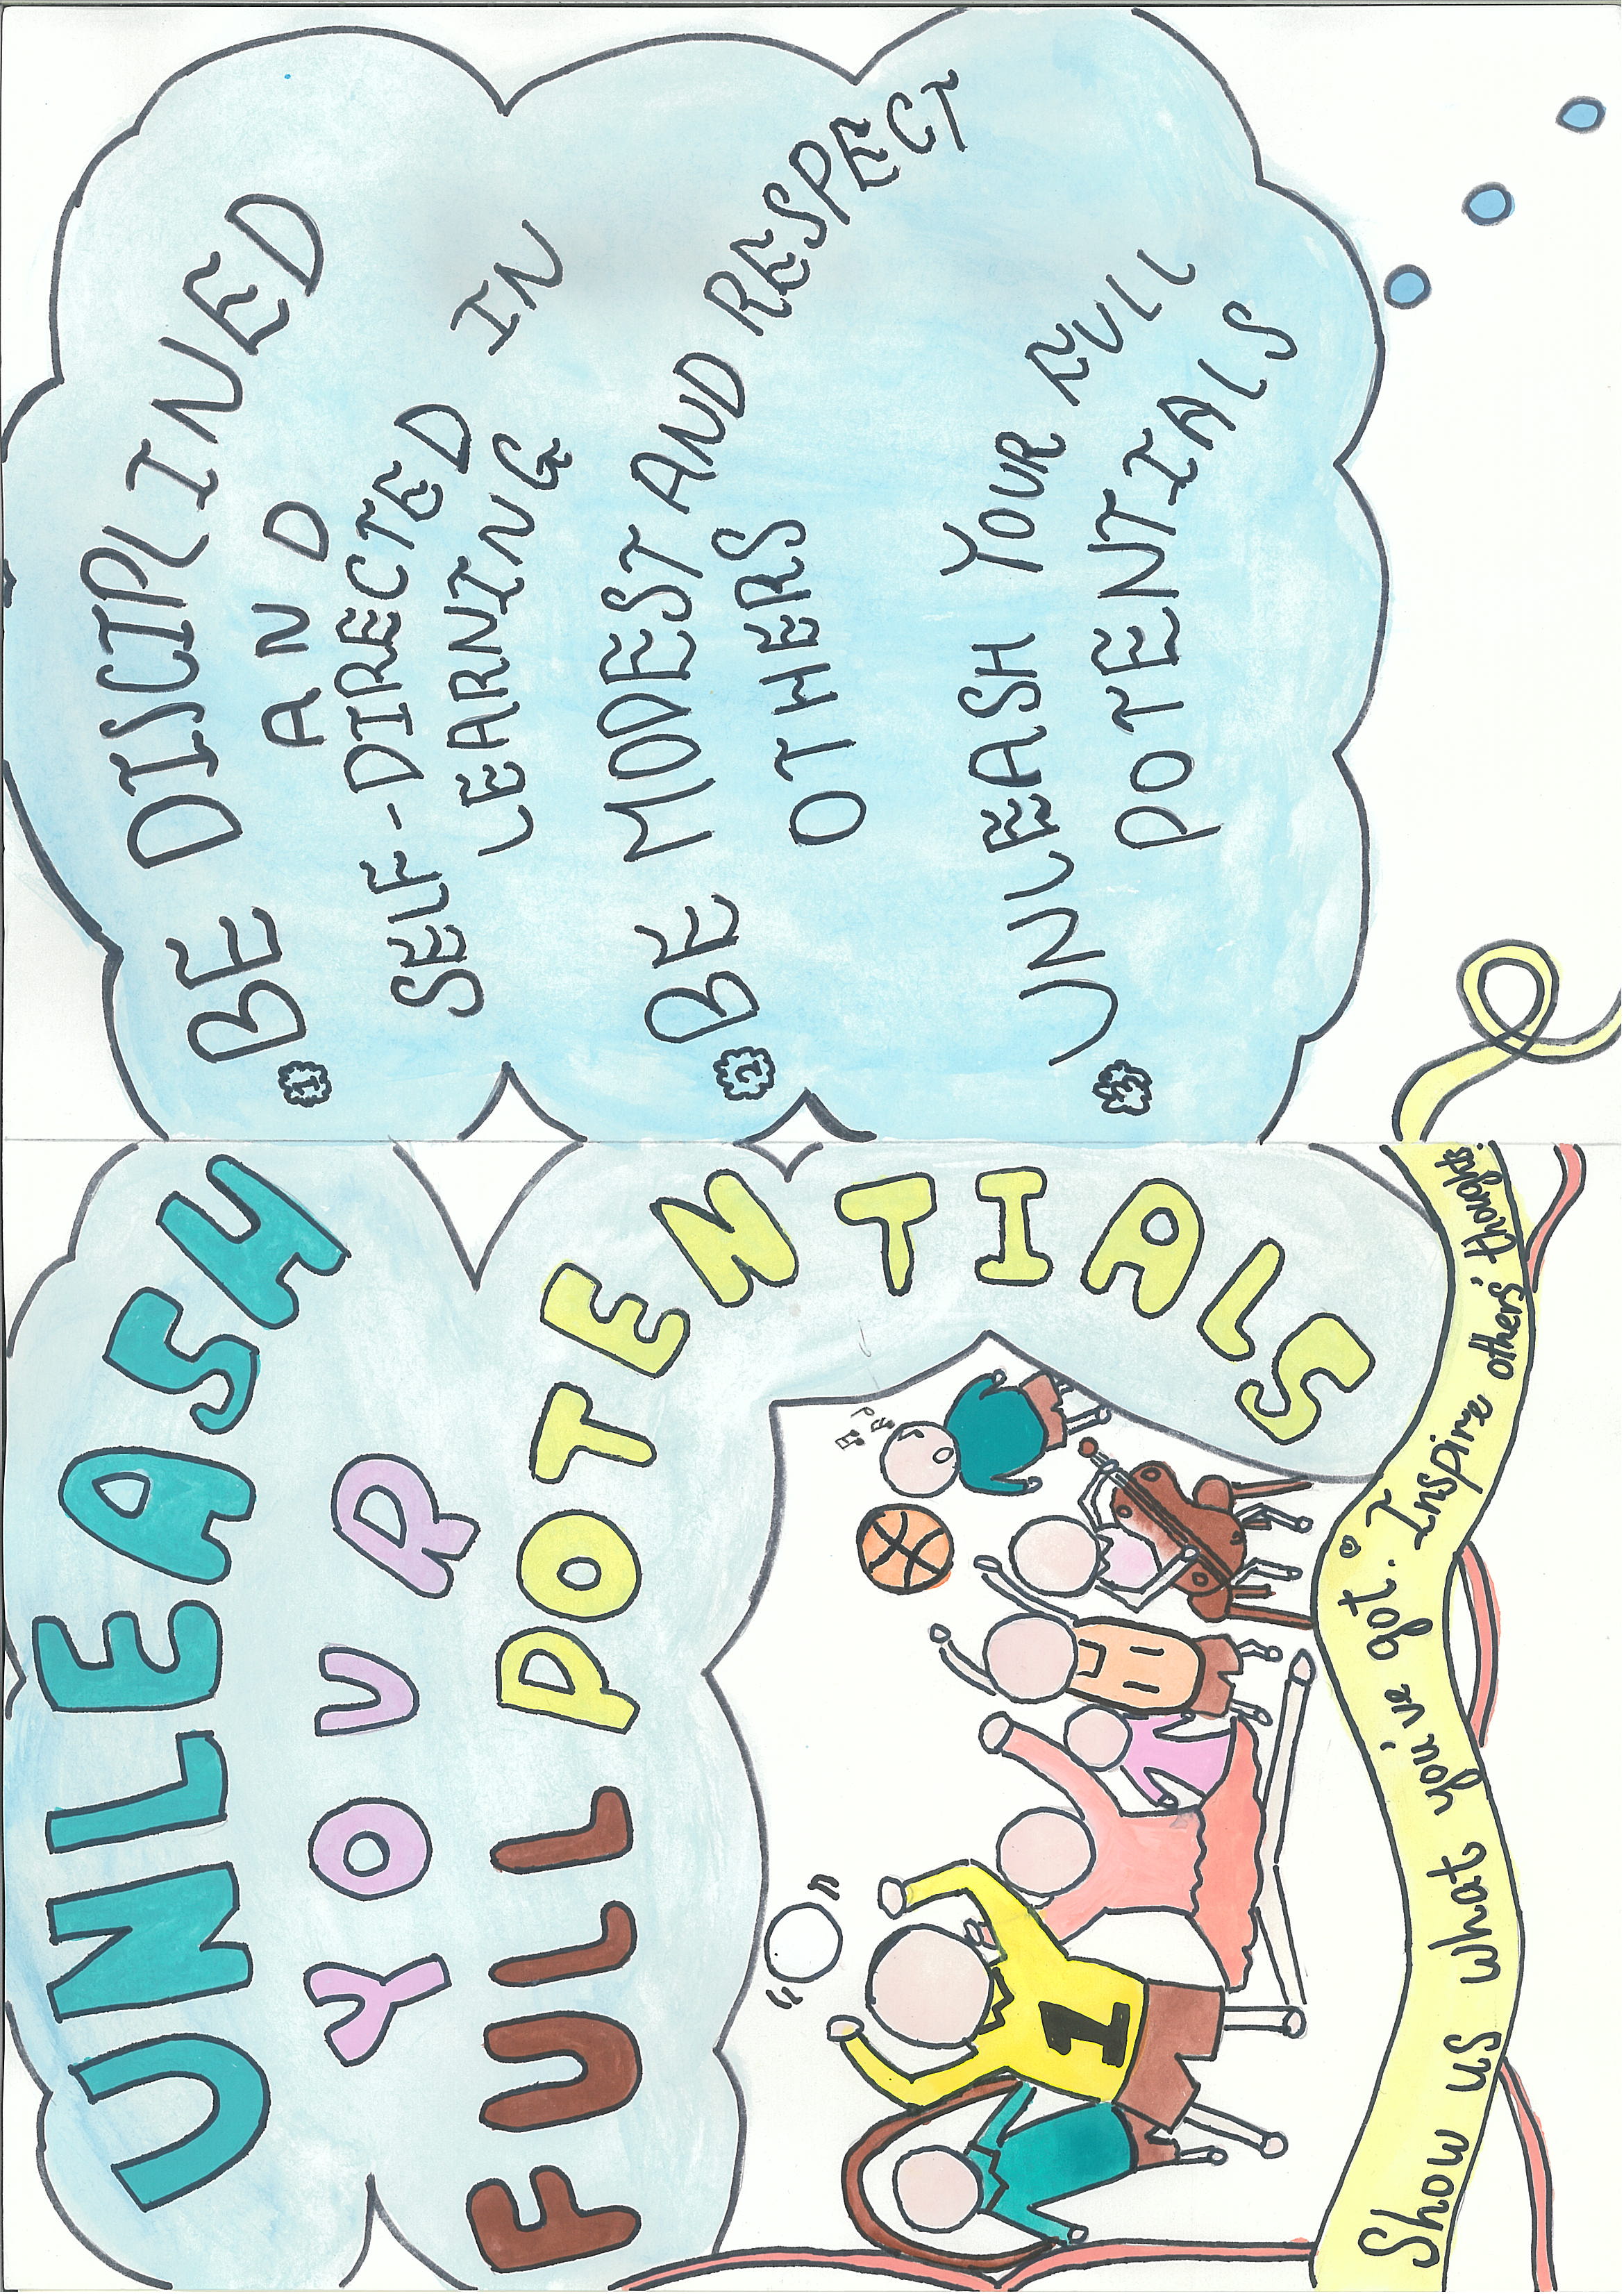 UNLEASH
YOUR
FULL POTENTIALS
1
Show us what you've got. Inspire others' thoughts.
1 BE DISCIPLINED
AND
SELF-DIRECTED IN
LEARNING
2 BE MODEST AND RESPECT
OTHERS
3 UNLEASH YOUR FULL
POTENTIALS